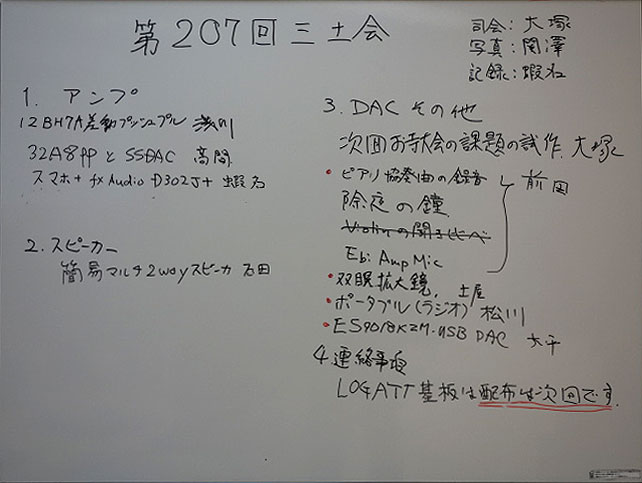 第207回三土会
司会:大塚
写真:関澤
記録:蝦名
1. アンプ
12BH7A差動プッシュプル 浅川
32A8PPとSSDAC 高間
スマホ+fx Audio D302J+ 蝦名
2. スピーカー
簡易マルチ2wayスピーカ 石田
3. DAC その他
次回お寺大会の課題の試作 大塚
・ピアノ協奏曲の録音 前田
除夜の鐘
Violinの聞き比べ
Ebi Amp Mic
・双眼拡大鏡, 土屋
・ポータブル(ラジオ) 松川
・ES9018K2M・USB DAC 大平
4. 連絡事項
LOGATT基板は配布は次回です.